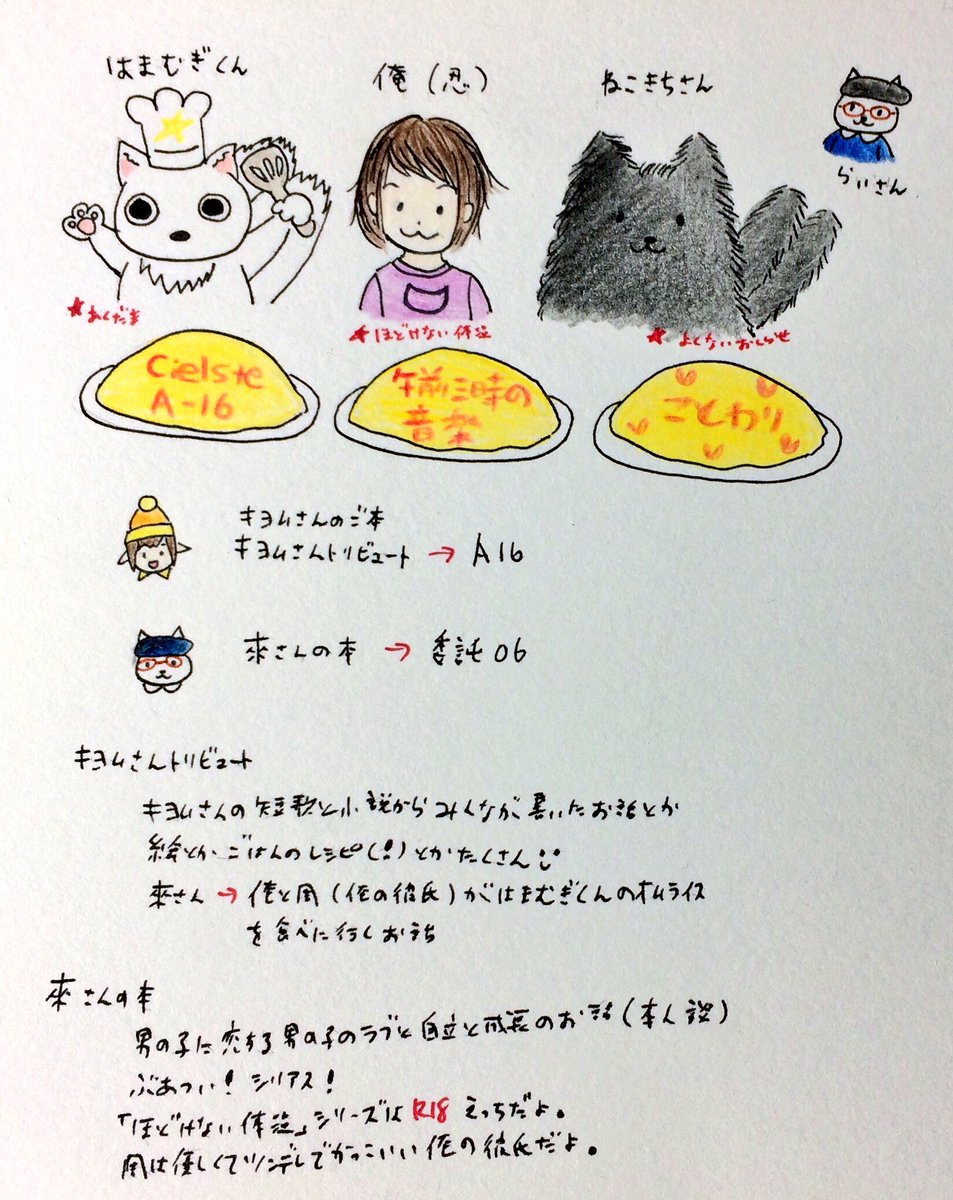 はまむぎくん
俺（忍）
ねこきちさん
らいさん
★あくだま
★ほどけない体温
★よくないおしらせ
Cielste
A-16
午前三時の
音楽
ことわり
キヨムさんのご本
キヨムさんトリビュート → A16
來さんの本 → 委託06
キヨムさんトリビュート
キヨムさんの短歌と小説からみんなが書いたお話とか
絵とかごはんのレシピ(!)とかたくさん
來さん → 俺と周（俺の彼氏）がはまむぎくんのオムライス
を食べに行くおはなし
來さんの本
男の子に恋する男の子のラブと自立と成長のお話（本人談）
ぶあつい！シリアス！
「ほどけない体温」シリーズは R18 えっちだよ。
周は優しくてツンデレでかっこいい俺の彼氏だよ。